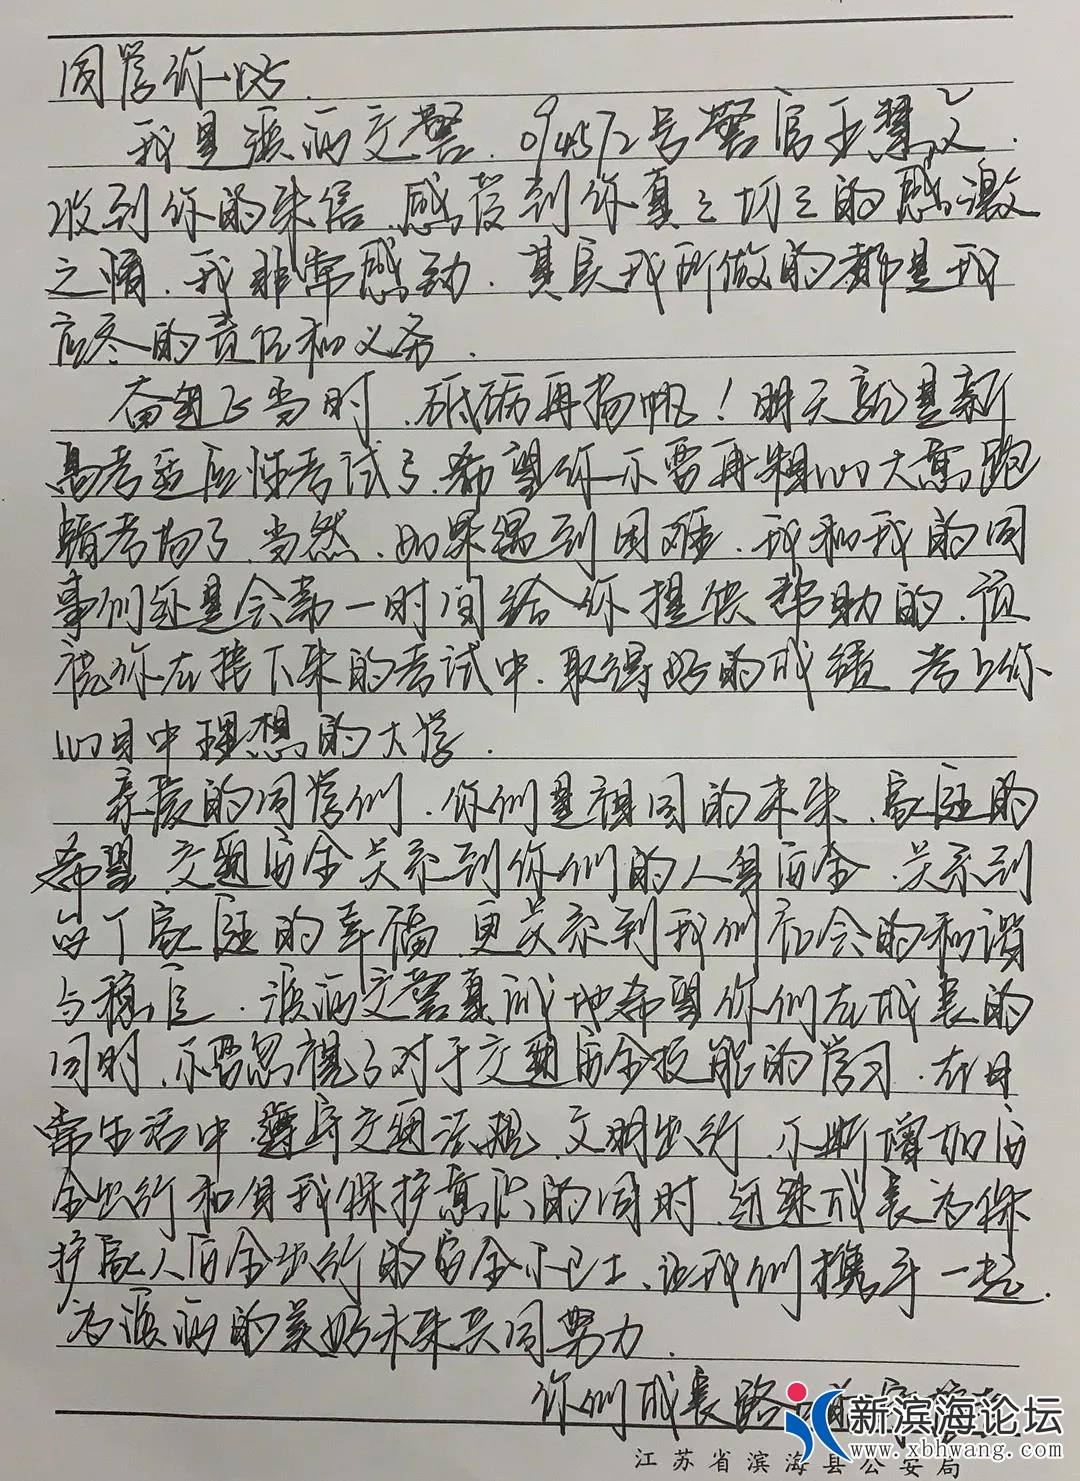 同学你好.
我是滨海交警.094572号警官王慧文.
收到你的来信.感受到你真之切之的感激
之情.我非常感动.其实我所做的都是我
应尽的责任和义务.
奋起正当时.砥砺再扬帆！明天就是新
高考适应性考试了.希望你不要再粗心大意跑
错考场了.当然.如果遇到困难.我和我的同
事们还是会第一时间给你提供帮助的.预
祝你在接下来的考试中.取得好的成绩 考上你
心目中理想的大学.
亲爱的同学们.你们是祖国的未来.家庭的
希望.交通安全关系到你们的人身安全.关系到
每个家庭的幸福.更关系到我们社会的和谐
与稳定.滨海交警真诚地希望你们在成长的
同时.不要忽视了对于交通安全技能的学习.在日
常生活中.遵守交通法规.文明出行.不断增加安
全出行和自我保护意识的同时.还能成长为保
护家人安全出行的安全小卫士.让我们携手一起.
为滨海的美好未来共同努力.
你们成长路
新滨海论坛
www.xbhwang.com
江苏省滨海县公安局